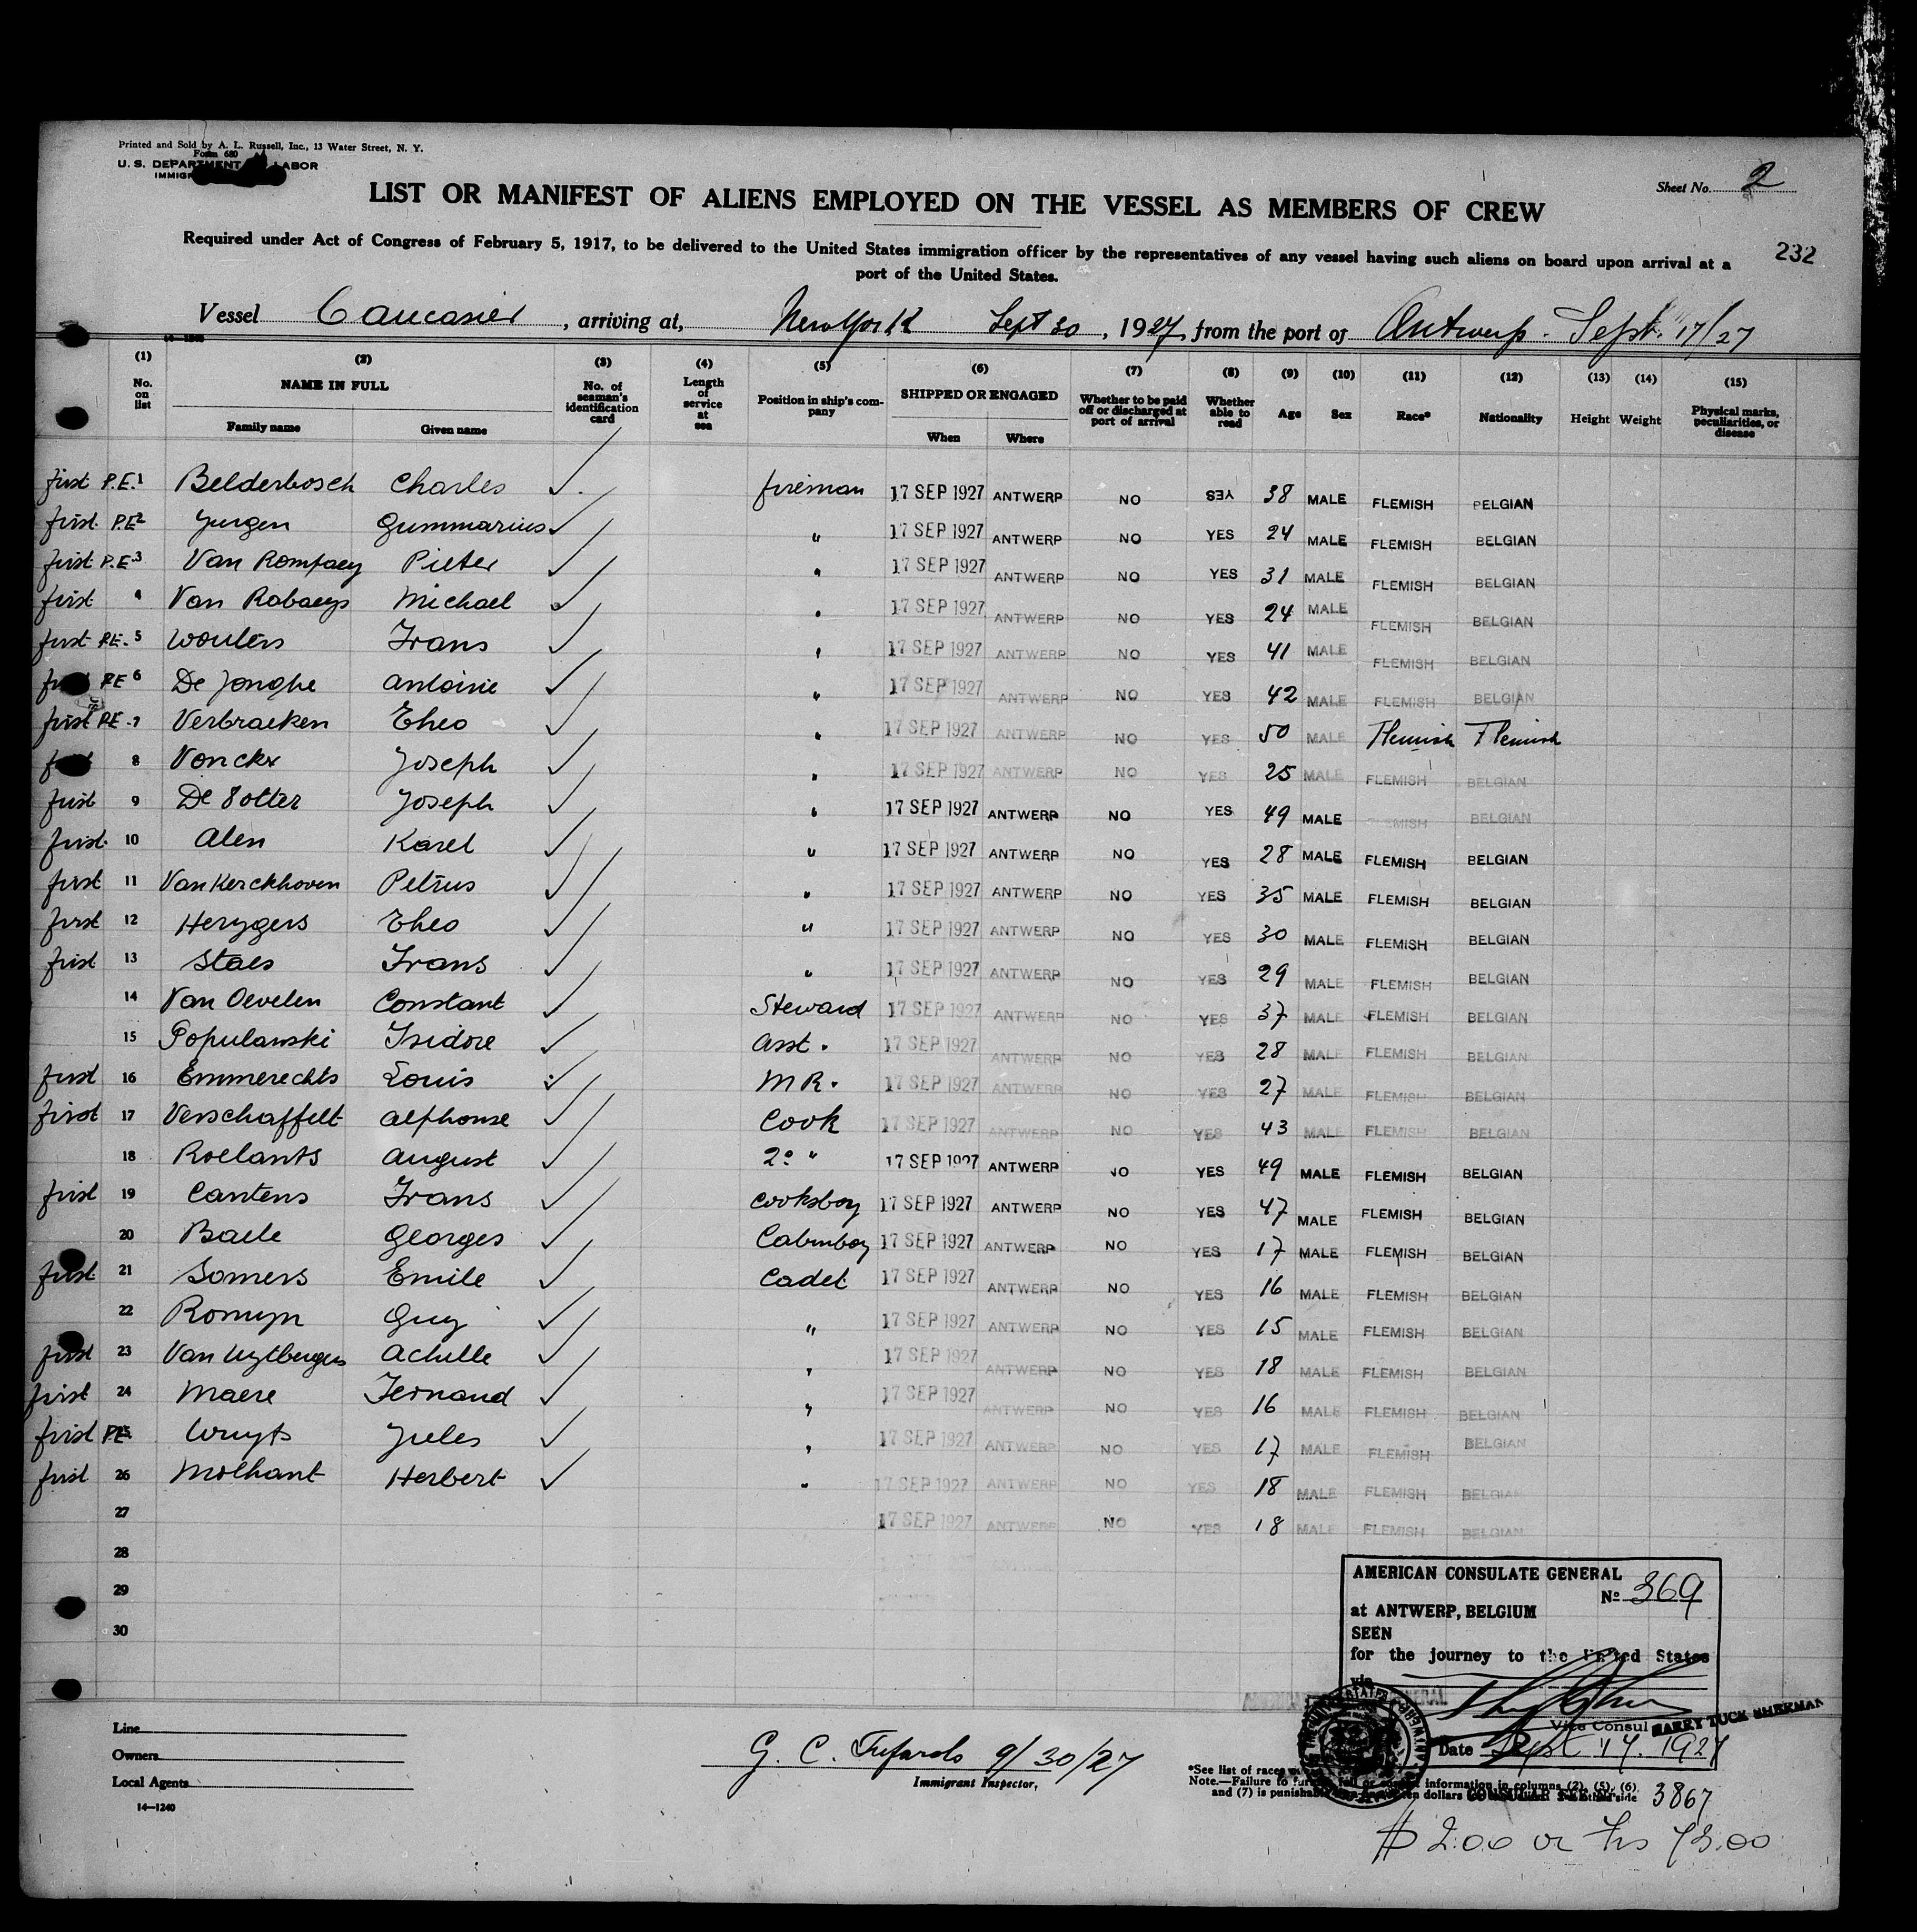 Printed and Sold by A. L. Russell, Inc., 13 Water Street, N. Y.
Form 680
U. S. DEPARTMENT LABOR
IMMIGR
Sheet No. 2
LIST OR MANIFEST OF ALIENS EMPLOYED ON THE VESSEL AS MEMBERS OF CREW
Required under Act of Congress of February 5, 1917, to be delivered to the United States immigration officer by the representatives of any vessel having such aliens on board upon arrival at a
port of the United States.
232
Vessel Caucasier, arriving at, New York Sept 30, 1927, from the port of Antwerp. Sept. 17/27
(1) No. on list (2) NAME IN FULL Family name Given name (3) No. of seaman's identification card (4) Length of service at sea (5) Position in ship's company (6) SHIPPED OR ENGAGED When Where (7) Whether to be paid off or discharged at port of arrival (8) Whether able to read (9) Age (10) Sex (11) Race* (12) Nationality (13) Height (14) Weight (15) Physical marks, peculiarities, or disease
first P.E. 1 Belderbosch Charles fireman 17 SEP 1927 ANTWERP NO YES 38 MALE FLEMISH BELGIAN
first P.E. 2 Jurgen Gummarius " 17 SEP 1927 ANTWERP NO YES 24 MALE FLEMISH BELGIAN
first P.E. 3 Van Rompaey Pieter " 17 SEP 1927 ANTWERP NO YES 31 MALE FLEMISH BELGIAN
first 4 Van Rabaeys Michael " 17 SEP 1927 ANTWERP NO YES 24 MALE FLEMISH BELGIAN
first P.E. 5 Wouters Frans " 17 SEP 1927 ANTWERP NO YES 41 MALE FLEMISH BELGIAN
first P.E 6 De Jonghe Antoine " 17 SEP 1927 ANTWERP NO YES 42 MALE FLEMISH BELGIAN
first P.E. 7 Verbraeken Theo " 17 SEP 1927 ANTWERP NO YES 50 MALE Flemish Flemish
first 8 Vonckx Joseph " 17 SEP 1927 ANTWERP NO YES 25 MALE FLEMISH BELGIAN
first 9 De Potter Joseph " 17 SEP 1927 ANTWERP NO YES 49 MALE FLEMISH BELGIAN
first 10 Alen Karel " 17 SEP 1927 ANTWERP NO YES 28 MALE FLEMISH BELGIAN
first 11 Van Kerckhoven Petrus " 17 SEP 1927 ANTWERP NO YES 35 MALE FLEMISH BELGIAN
first 12 Herygers Theo " 17 SEP 1927 ANTWERP NO YES 30 MALE FLEMISH BELGIAN
first 13 Staes Frans " 17 SEP 1927 ANTWERP NO YES 29 MALE FLEMISH BELGIAN
14 Van Oevelen Constant Steward 17 SEP 1927 ANTWERP NO YES 37 MALE FLEMISH BELGIAN
15 Populawski Isidore Asst. 17 SEP 1927 ANTWERP NO YES 28 MALE FLEMISH BELGIAN
first 16 Emmerechts Louis M R. 17 SEP 1927 ANTWERP NO YES 27 MALE FLEMISH BELGIAN
first 17 Verschaffelt Alphonse Cook 17 SEP 1927 ANTWERP NO YES 43 MALE FLEMISH BELGIAN
18 Roelants August 2° " 17 SEP 1927 ANTWERP NO YES 49 MALE FLEMISH BELGIAN
first 19 Cantens Frans Cooksboy 17 SEP 1927 ANTWERP NO YES 47 MALE FLEMISH BELGIAN
20 Baele Georges Cabinboy 17 SEP 1927 ANTWERP NO YES 17 MALE FLEMISH BELGIAN
first 21 Somers Emile Cadet 17 SEP 1927 ANTWERP NO YES 16 MALE FLEMISH BELGIAN
22 Romyn Guy " 17 SEP 1927 ANTWERP NO YES 15 MALE FLEMISH BELGIAN
first 23 Van Uytbergen Achille " 17 SEP 1927 ANTWERP NO YES 18 MALE FLEMISH BELGIAN
first 24 Maere Fernand " 17 SEP 1927 ANTWERP NO YES 16 MALE FLEMISH BELGIAN
first P.E. Wuyts Jules " 17 SEP 1927 ANTWERP NO YES 17 MALE FLEMISH BELGIAN
first 26 Molhant Herbert " 17 SEP 1927 ANTWERP NO YES 18 MALE FLEMISH BELGIAN
27 17 SEP 1927 ANTWERP NO YES 18 MALE FLEMISH BELGIAN
28
29
30
AMERICAN CONSULATE GENERAL
No 369
at ANTWERP, BELGIUM
SEEN
for the journey to the United States
via
Vice Consul HARRY TUCK SHERMAN
Date Sept 17. 1927
Line
Owners
Local Agents
14—1240
G. C. Tufards 9/30/27
Immigrant Inspector.
*See list of races
Note.—Failure to furnish full or correct information in columns (2), (5), (6),
and (7) is punishable ten dollars side
3867
$ 2.00 or frs 73.00